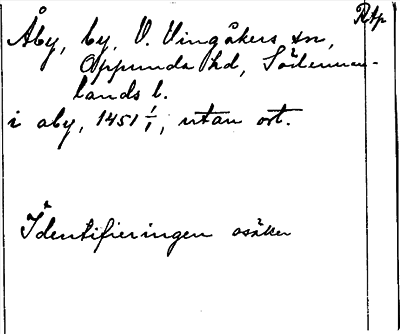 Rtp
Åby, by, V. Vingåkers sn,
Oppunda hd, Söderman-
lands l.
i aby, 1451 1/1, utan ort.
Identifieringen osäker